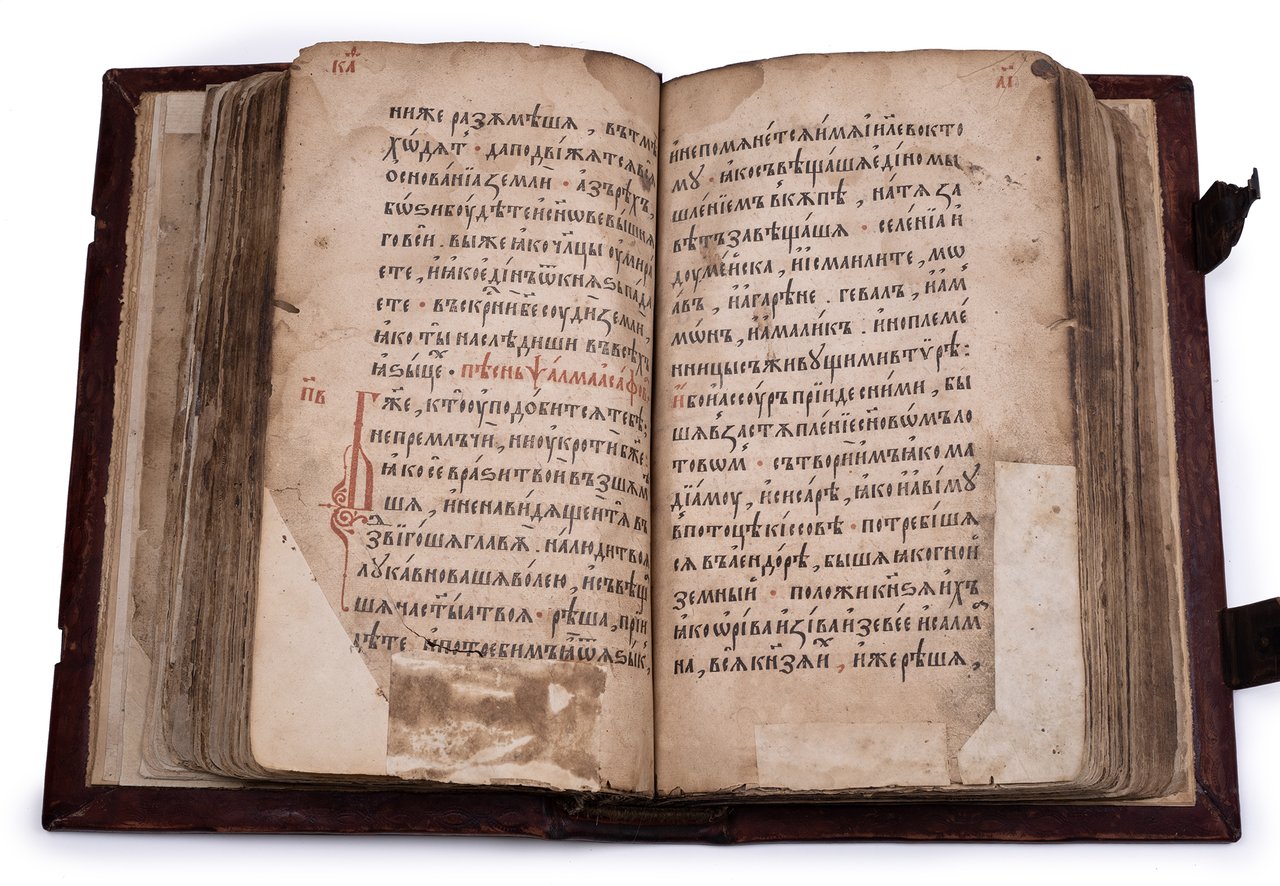 к҃а
ниже разѫмѣшѧ , вътмѣ
хѡ́дѧт҇ · даподви́жѧтсѧвсѧ
ѻснова́нїаꙁемли̂ · а́зърѣ́хъ,
бѡ́ѕибоу́дѣтеисн҃ѡвевы́шнѧ
говсѝ . выжеꙗ́кочл҃цыоу́мира
ете , ѝꙗкоедінъѿкнѧѕьпа́да
ете · въскр҃нибе҃соудиꙁемли̂,
ꙗ́котынаслѣдиши въвсѣхъ
ꙗѕы́цѣ҇ · пѣсньѱалмаасафов,
п҃в
Бж҃е , ктоу҆подо́битсѧтебѣ:
непремлъчѝ , ниоукротѝбж҃е
ꙗкосе́вра́ѕитвоѝвъзшѧм
шѧ , ѝненави́дѧщеѝтѧ въ
зви́гошѧглавѫ . на́людитвоѧ
лꙋка́вновашѧво́лею , ѝсъвѣщ
шѧнаст҃ыатвоѧ · рѣша , прїи
дѣте ѝпотребимъꙗѿѧѕы́к ,
а҃і
ѝнепомѧне́тсѧи́мѧі҃илевокто
мꙋ · ꙗкосъвѣща́шѧеді́номы
шле́нїемъвкѫпѣ , на́тѧꙁа
вѣтъзавѣща́шѧ · селе́нїаѝ
доумѐйска , ѝїсмаилите , мѡ
а́въ , ѝага́рѣне . гевалъ , ѝам҇
мѡнъ , ѝамали́къ . ѝноплеме́
нницысъживꙋщимивтѵрѣ :
и́боѝассоу́ръпрїидесни́ми , бы
шѧвꙁастѫпле́нїесн҃овѡ́мъло
товѡм҇ · сътворѝимъꙗ́кома
дїа́моу , ѝсисарѣ , ꙗкоѝаві́мꙋ
впотоцѣкі́ссовѣ · потребі́шѧ
сѧвъаенд́орѣ , бышѧꙗкогной
земныѝ · положикнѧ̃ѕѧихъ
ꙗкоѡрі́ваѝꙁі́ваѝзеве́еѝсалм
на , всѧ̀кнѧ̃зѧѝ , ѝжерѣшѧ ,